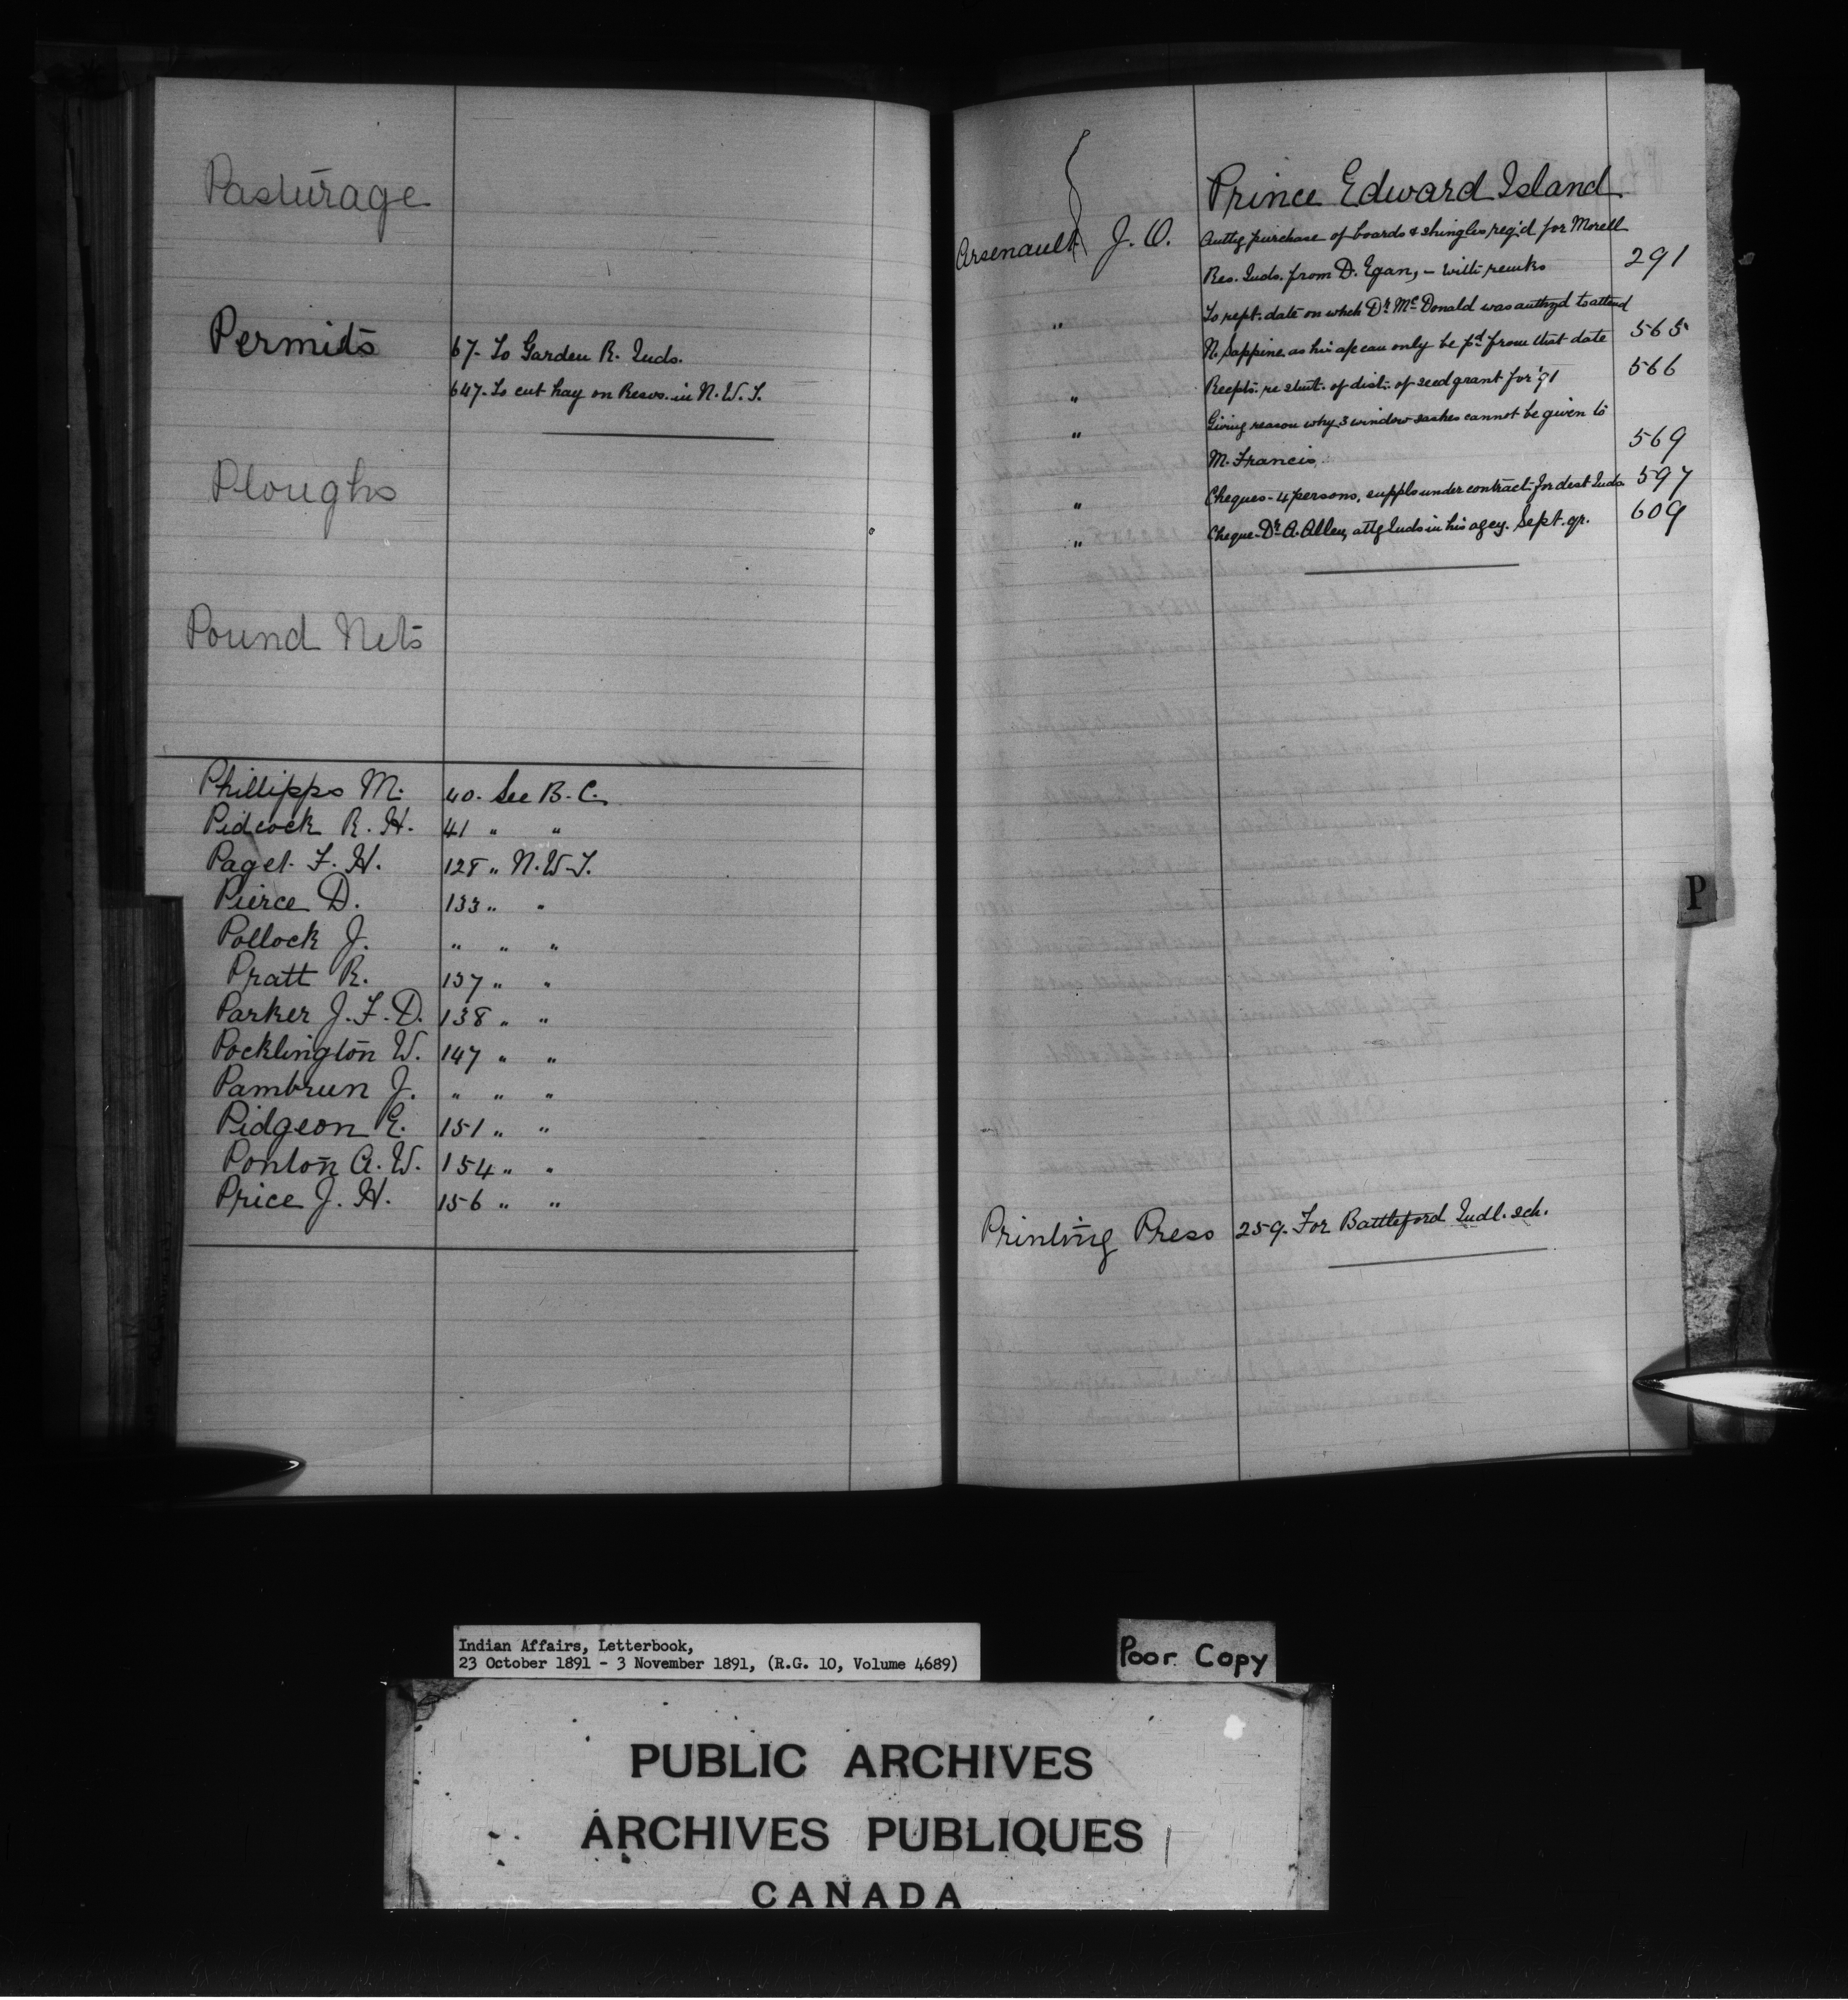 Pasturage
Permits
67- To Garden R. Inds.
647- To cut hay on Resvs. in N.W.T.
Ploughs
Pound Nets
Phillipps M. 40. See B.C.
Pidcock R. H. 41 " "
Paget F. H. 128 " N.W.T.
Pierce D. 133 " "
Pollock J. " " "
Pratt R. 137 " "
Parker J. F. D. 138 " "
Pocklington W. 147 " "
Pambrun J. " " "
Pidgeon E. 151 " "
Ponton A. W. 154 " "
Price J. H. 156 " "
Prince Edward Island
Arsenault J. O. Authg purchase of boards & shingles reqd for Morell
Res. Inds. from D. Egan, - with remks 291
" To rept. date on which Dr. McDonald was authzd to attend
N. Sappine as his a/c can only be pd from that date 565
" Recpts. re stmt. of dist. of seed grant for '91 566
" Giving reason why 3 window sashes cannot be given to
M. Francis. 569
" Cheques - 4 persons, suppls under contract for dest Inds 597
" Cheque - Dr. A. Allen, attg Inds in his agcy. Sept. qr. 609
Printing Press 259. For Battleford Indl. sch.
P
Indian Affairs, Letterbook,
23 October 1891 - 3 November 1891, (R.G. 10, Volume 4689)
Poor Copy
PUBLIC ARCHIVES
ARCHIVES PUBLIQUES
CANADA